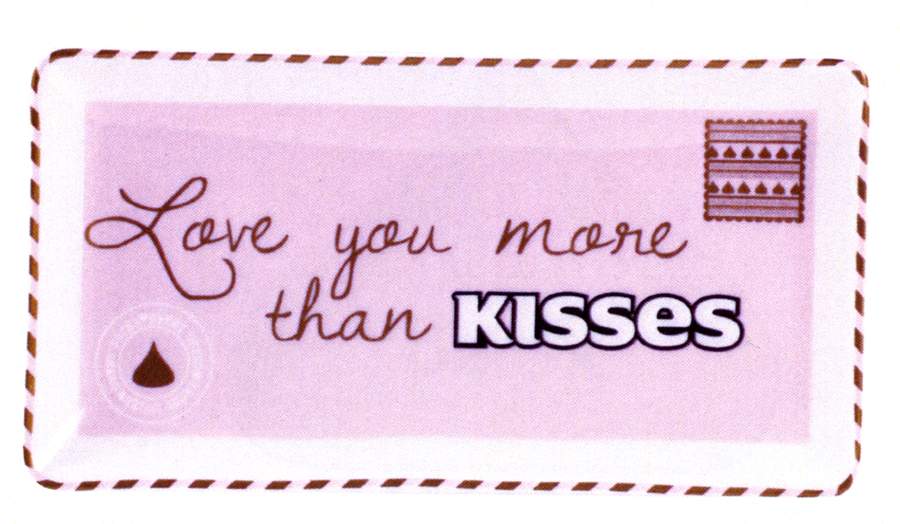 Love you more
than KISSES